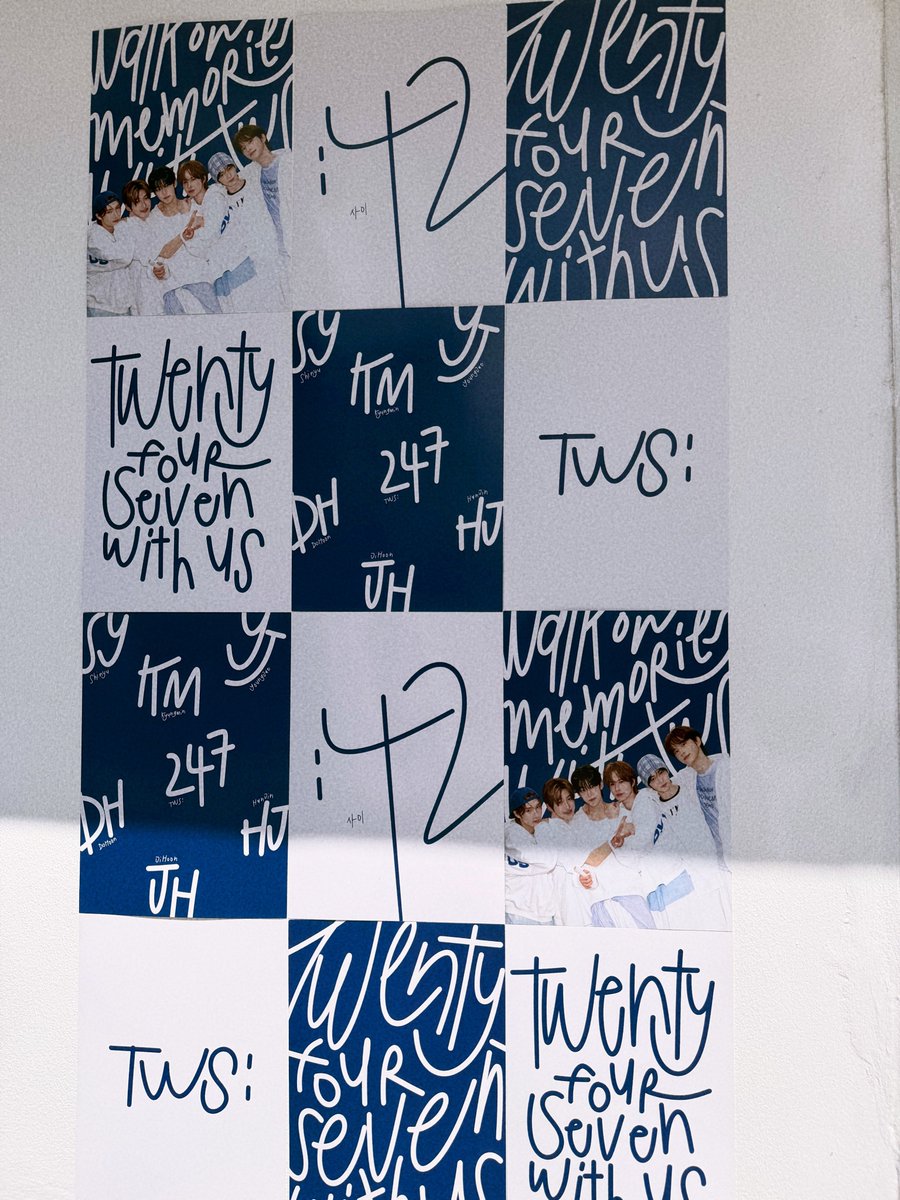 Walk on
memories
:42
사이
Twenty
four
seven
with us
Twenty
four
seven
with us
SY
Shinyu
YJ
Youngjae
KM
Kyungmin
247
TWS:
DH
DoHoon
HanJin
HJ
JiHoon
JH
TWS:
SY
Shinyu
YJ
Youngjae
KM
Kyungmin
247
TWS:
DH
DoHoon
HanJin
HJ
JiHoon
JH
:42
사이
Walk on
memories
TWS:
Twenty
four
seven
with us
Twenty
four
seven
with us